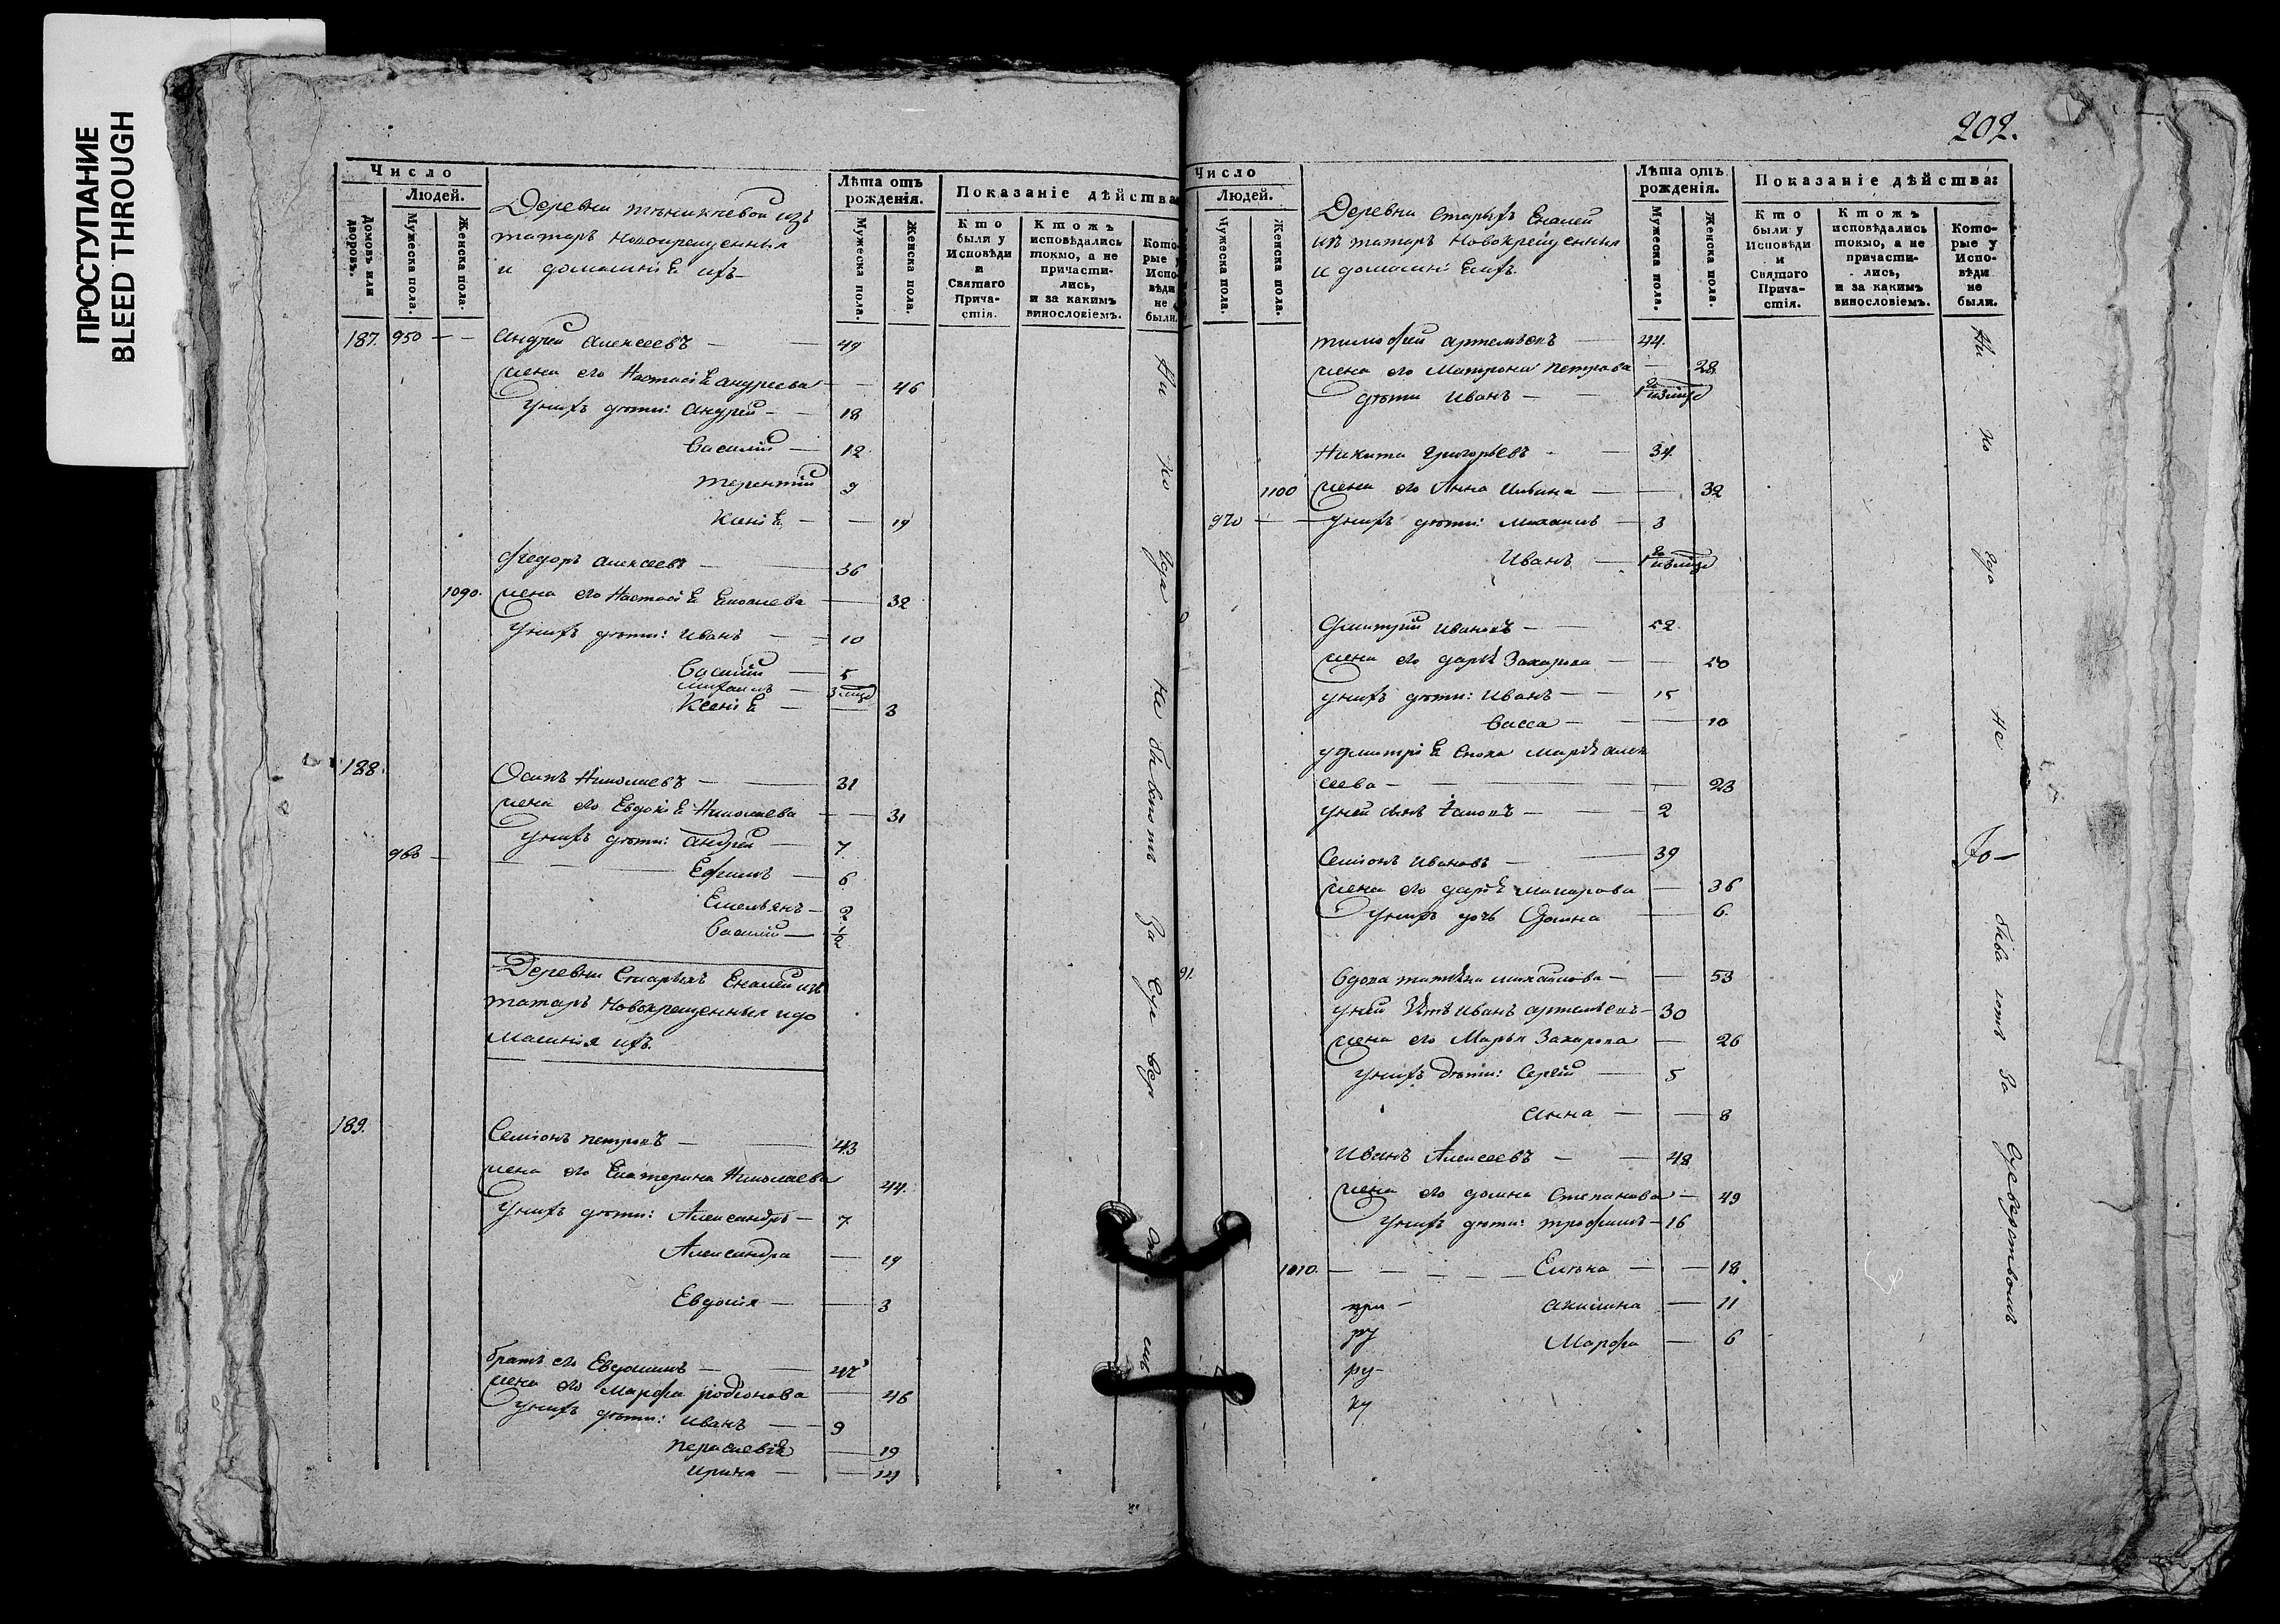 ПРОСТУПАНИЕ
BLEED THROUGH
Число
Людей.
Домовъ или дворовъ.
Мужеска пола.
Женска пола.
Деревни изъ
татаръ Новокрещенныя
и домашнiе ихъ
Лѣта отъ рожденiя.
Мужеска пола.
Женска пола.
Показанiе дѣйства
Кто были у Исповѣди и Святаго Прича-стiя.
Ктожъ исповѣдались токмо, а не причасти-лись, и за какимъ винословiемъ.
Кото-рые у Испо-вѣди не были.
187. 950 — — Андрей Алексеевъ — 49
жена его Настасiя Андреева — 46
У нихъ дѣти: Андрей — 18
Василий — 12
Терентий 9
Ксенiя — — 19
Федоръ Алексеевъ — 36
1090. жена его Настасiя — 32
У нихъ дѣти: Иванъ — 10
Василий — 5
Михаилъ — 3 мца
Ксенiя — — 3
188. Осипъ Николаевъ — 31
жена его Евдокiя Николаева — 31
У нихъ дѣти: Андрей — 7
960 — Ефимъ — 6
Емельянъ — 2
Василий — 1/2
Деревни Старыхъ Еналей изъ
татаръ Новокрещенныя и до
машнiя ихъ
189. Семiонъ Петровъ — 43
жена его Екатерина Николаева 44.
У нихъ дѣти: Александръ — 7
Александра — 19
Евдокiя — 3
братъ его Евдокимъ — 47
жена его Марфа Родiонова — 46
У нихъ дѣти: Иванъ — 9
Параскевiя — 19
Ирина — 14
Ни
202.
Число
Людей.
Мужеска пола.
Женска пола.
Деревни Старыхъ Еналей
изъ татаръ Новокрещенныя
и домашнiе ихъ
Лѣта отъ рожденiя.
Мужеска пола.
Женска пола.
Показанiе дѣйства:
Кто были у Исповѣди и Святаго Прича-стiя.
Ктожъ исповѣдались токмо, а не причасти-лись, и за какимъ винословiемъ.
Кото-рые у Испо-вѣди не были.
Тимофей Артемьевъ — 44.
жена его Матрона Петрова — 28
дѣти Иванъ —
Никита Григорьевъ — 34
1100 жена его Анна — 32
970 — — У нихъ дѣти: Михаилъ — 3
Иванъ —
Дмитрий Ивановъ — 52
жена его Дарья Захарова — 50
У нихъ дѣти: Иванъ — 15
Васса — 10
У Дмитрiя сноха Марья Алек
сеева — 23
У ней сынъ — 2
Семiонъ Ивановъ — 39
жена его Дарья Макарова — 36
У нихъ дочь Домна — 6.
Вдова Михайлова — 53
У ней зять Иванъ Артемьевъ — 30
жена его Марья Захарова — 26
У нихъ дѣти: Сергей — 5
Анна — 8
Иванъ Алексеевъ — 48
жена его Домна Степанова — 49
У нихъ дѣти: Трофимъ — 16
1110. — Елѣна — 18
Акилина — 11
Марфа — 6
ру
ру
ку
Ни ко
не
за